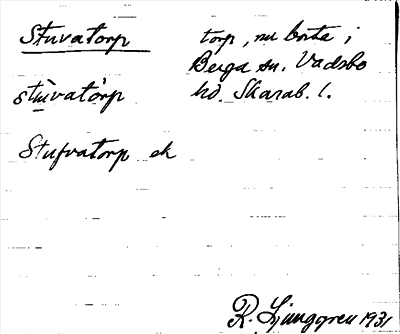 Stuvatorp torp, nu borta i
Berga sn. Vadsbo
stùvatòrp hd. Skarab. l.
Stufvatorp ek
R. Ljunggren 1931